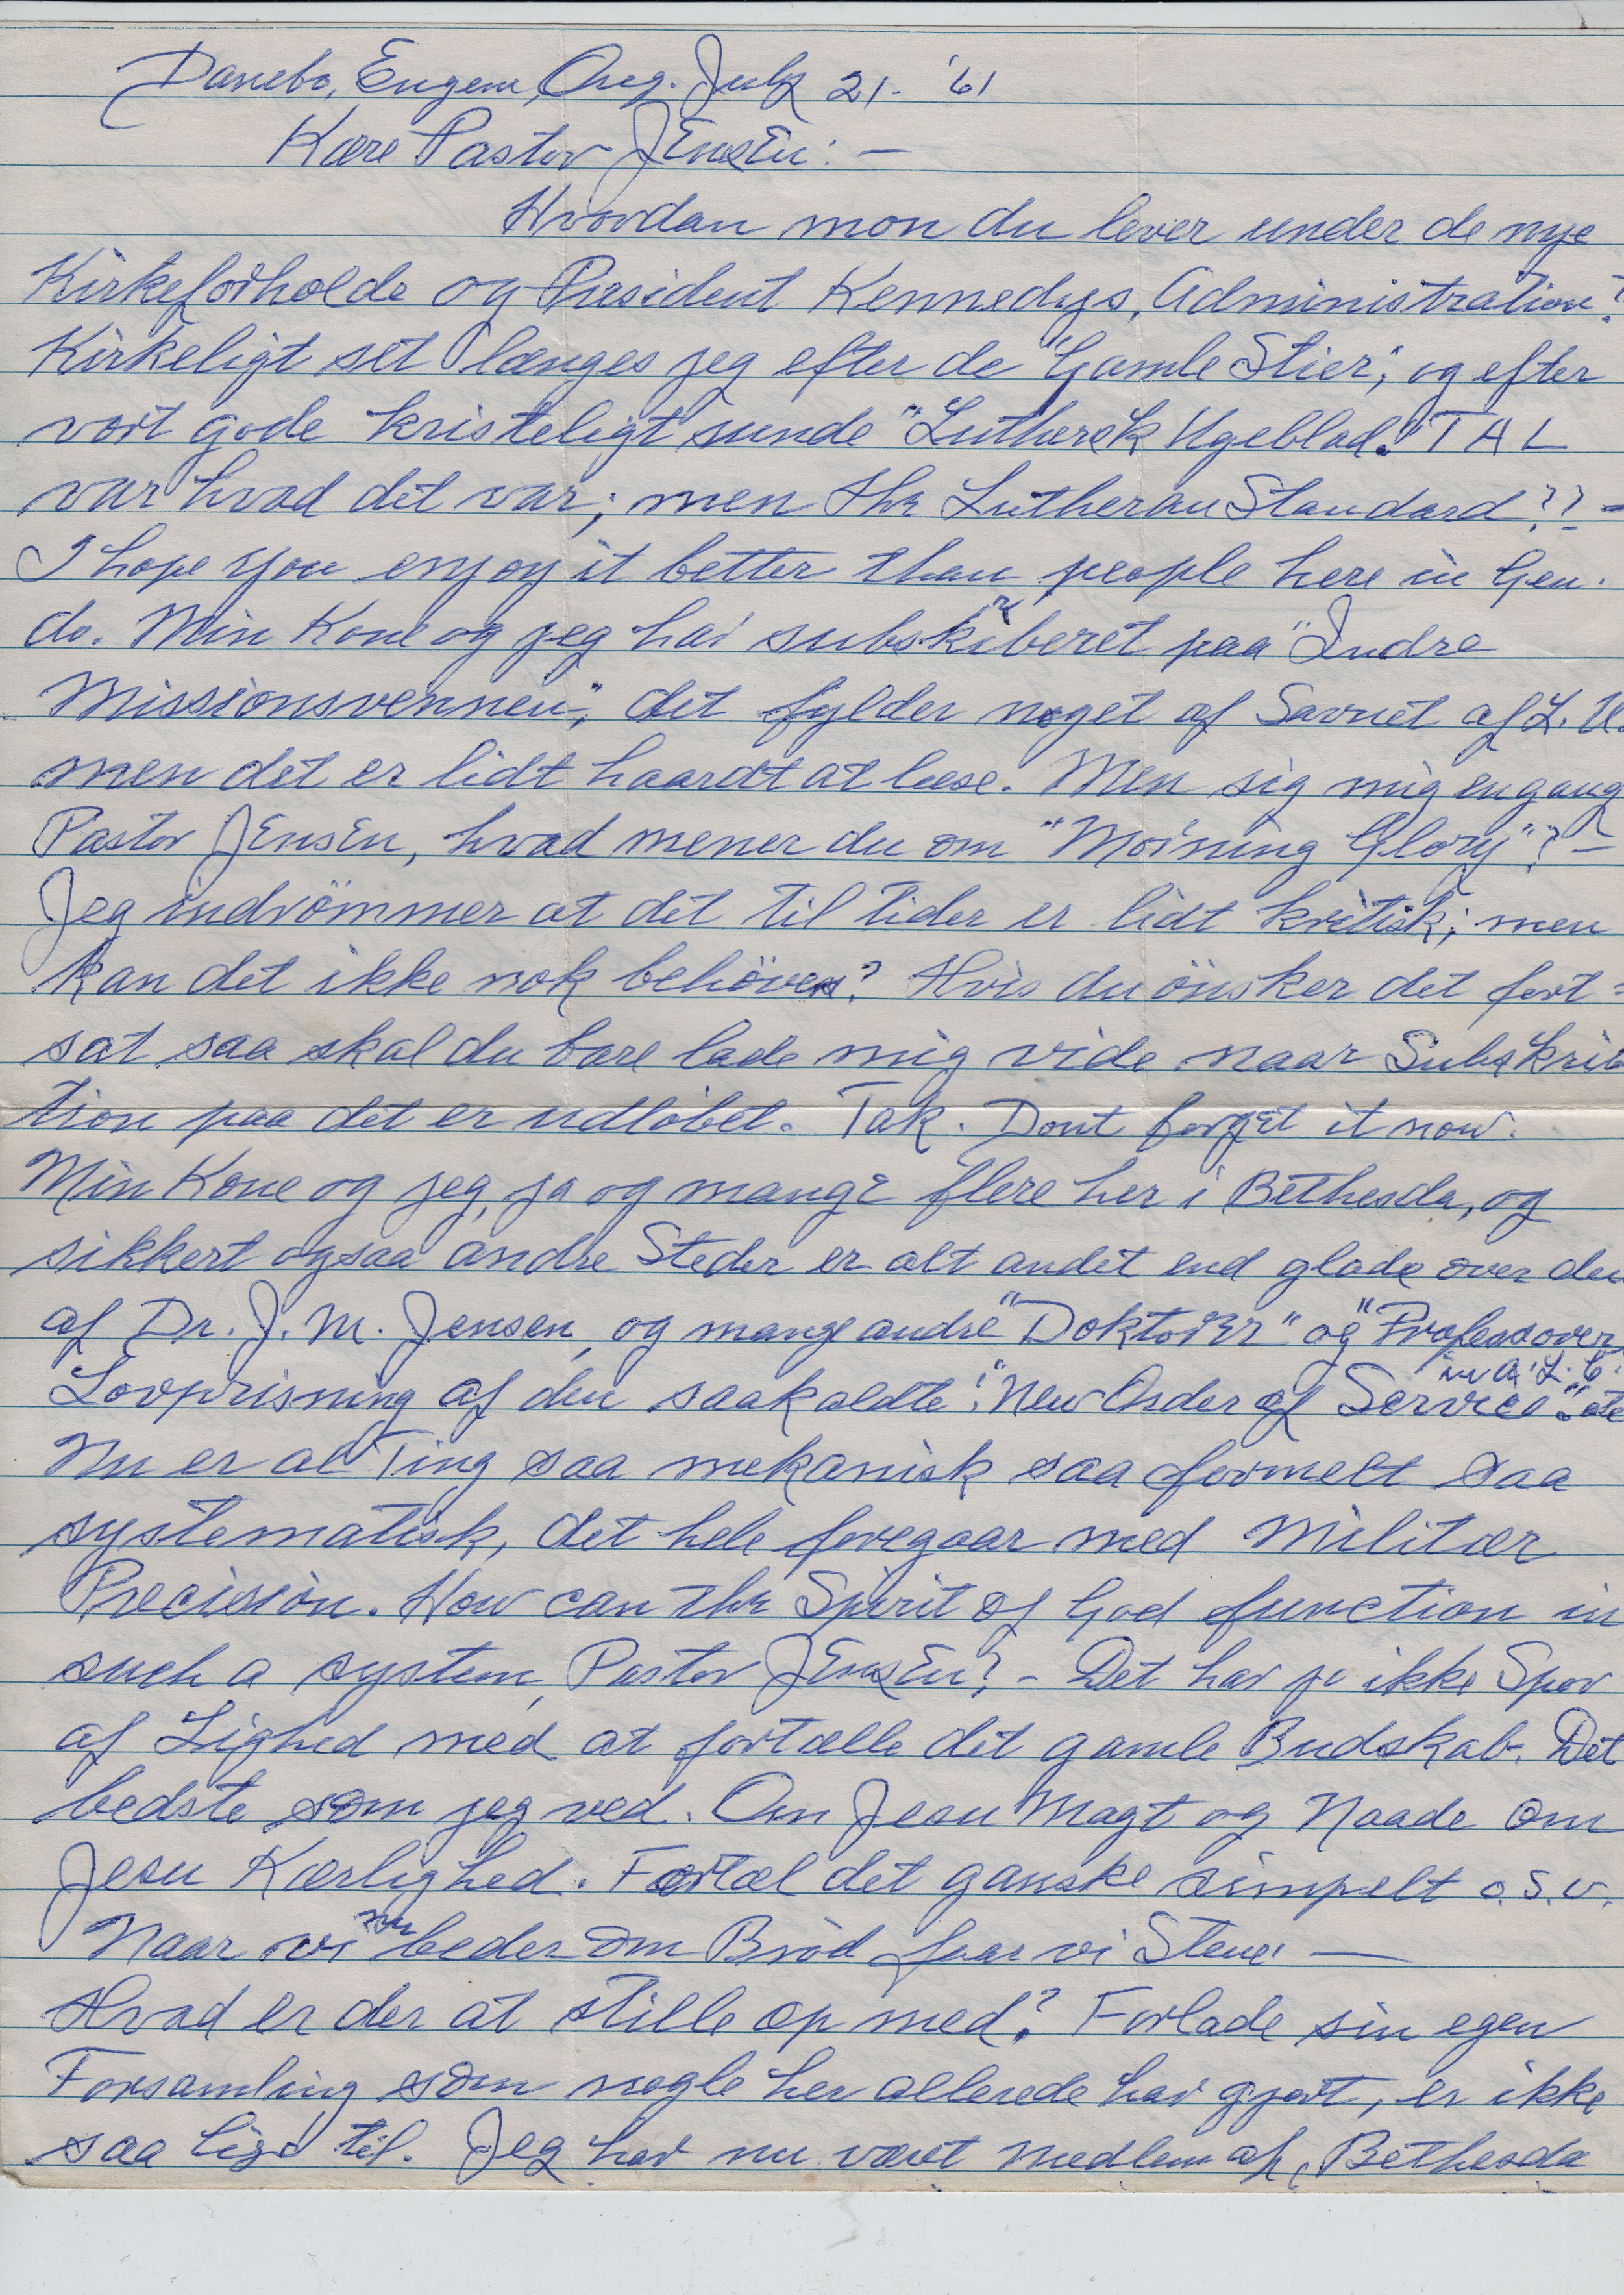 Danebo, Eugene, Oreg. July 21. '61
Kære Pastor Jensen: —
Hvordan mon du lever under de nye
Kirkeforholde og Præsident Kennedys, Administration?
Kirkeligt set længes jeg efter de "Gamle Stier", og efter
vort gode kristeligt sunde "Luthersk Ugeblad." T A L
var hvad det var; men the Lutheran Standard?? -
I hope you enjoy it better than people here in Gen.
do. Min Kone og jeg har subskriberet paa "Indre
Missionsvennen", det fylder noget af Savnet af L. U.
men det er lidt haardt at læse. Men sig mig engang
Pastor Jensen, hvad mener du om "Morning Glory"? -
Jeg indrömmer at det til tider er lidt kritisk; men
kan det ikke nok behöves? Hvis du önsker det fort=
sat saa skal du bare lade mig vide naar Subskrib
tion paa det er udlöbet. Tak. Dont forget it now.
Min Kone og jeg, ja og mange flere her i Bethesda, og
sikkert ogsaa andre Steder er alt andet end glade over den
af Dr. J. M. Jensen, og mange andre "Doktorer" og "Professorer
Lovprisning af den saakaldte: "New Order of Service". in A. L. C.
Nu er al Ting saa mekanisk saa formelt saa
systematisk, det hele foregaar med Militær
Precision. How can the Spirit of God function in
such a system, Pastor Jensen? - Det har jo ikke Spor
af Lighed med at fortælle det gamle Budskab. Det
bedste som jeg ved. Om Jesu Magt og Naade om
Jesu Kærlighed. Fortæl det ganske simpelt o.s.v.
Naar vi nu beder om Bröd faar vi Stene. —
Hvad er der at stille op med? Forlade sin egen
Forsamling som nogle her allerede har gjort, er ikke
saa lige til. Jeg har nu været Medlem af, Bethesda